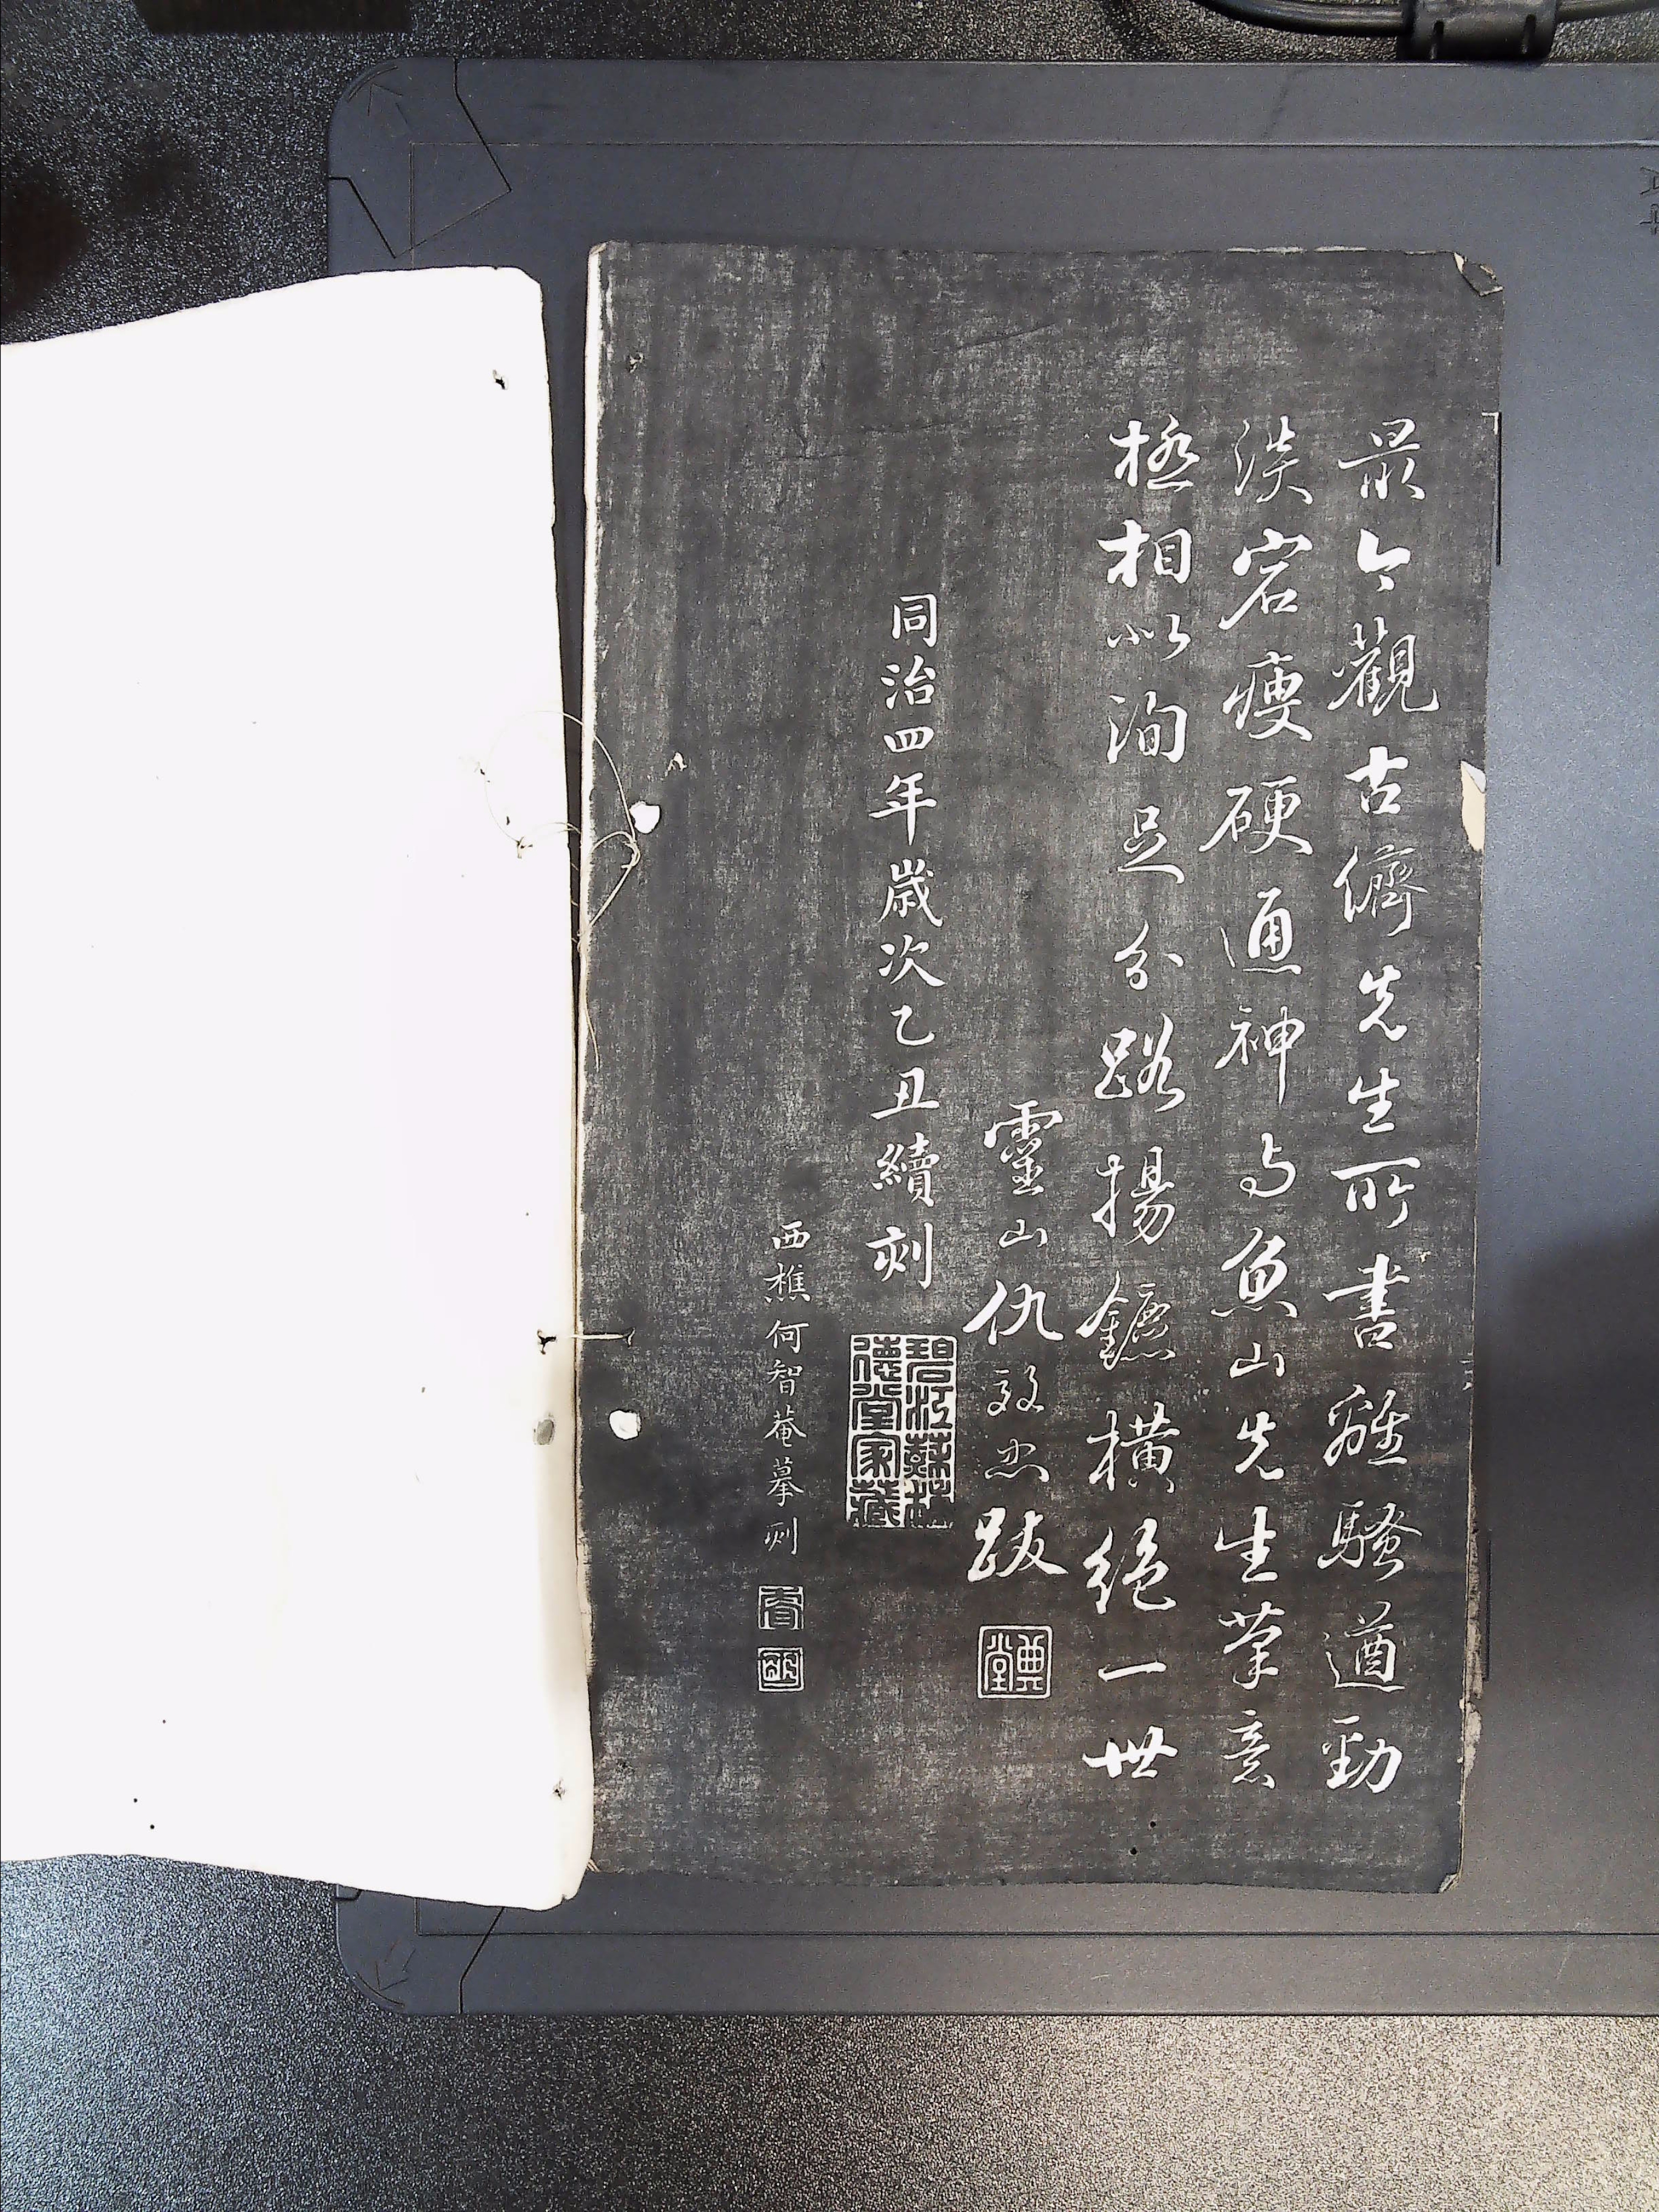 最今觀古儕先生所書離騷遒勁
淡宕瘦硬通神与魚山先生筆意
極相似洵足分路揚鑣橫絕一世
靈山仇效忠跋
典堂
同治四年歲次乙丑續刻
碧江蘇林
德堂家藏
西樵何智菴摹刻